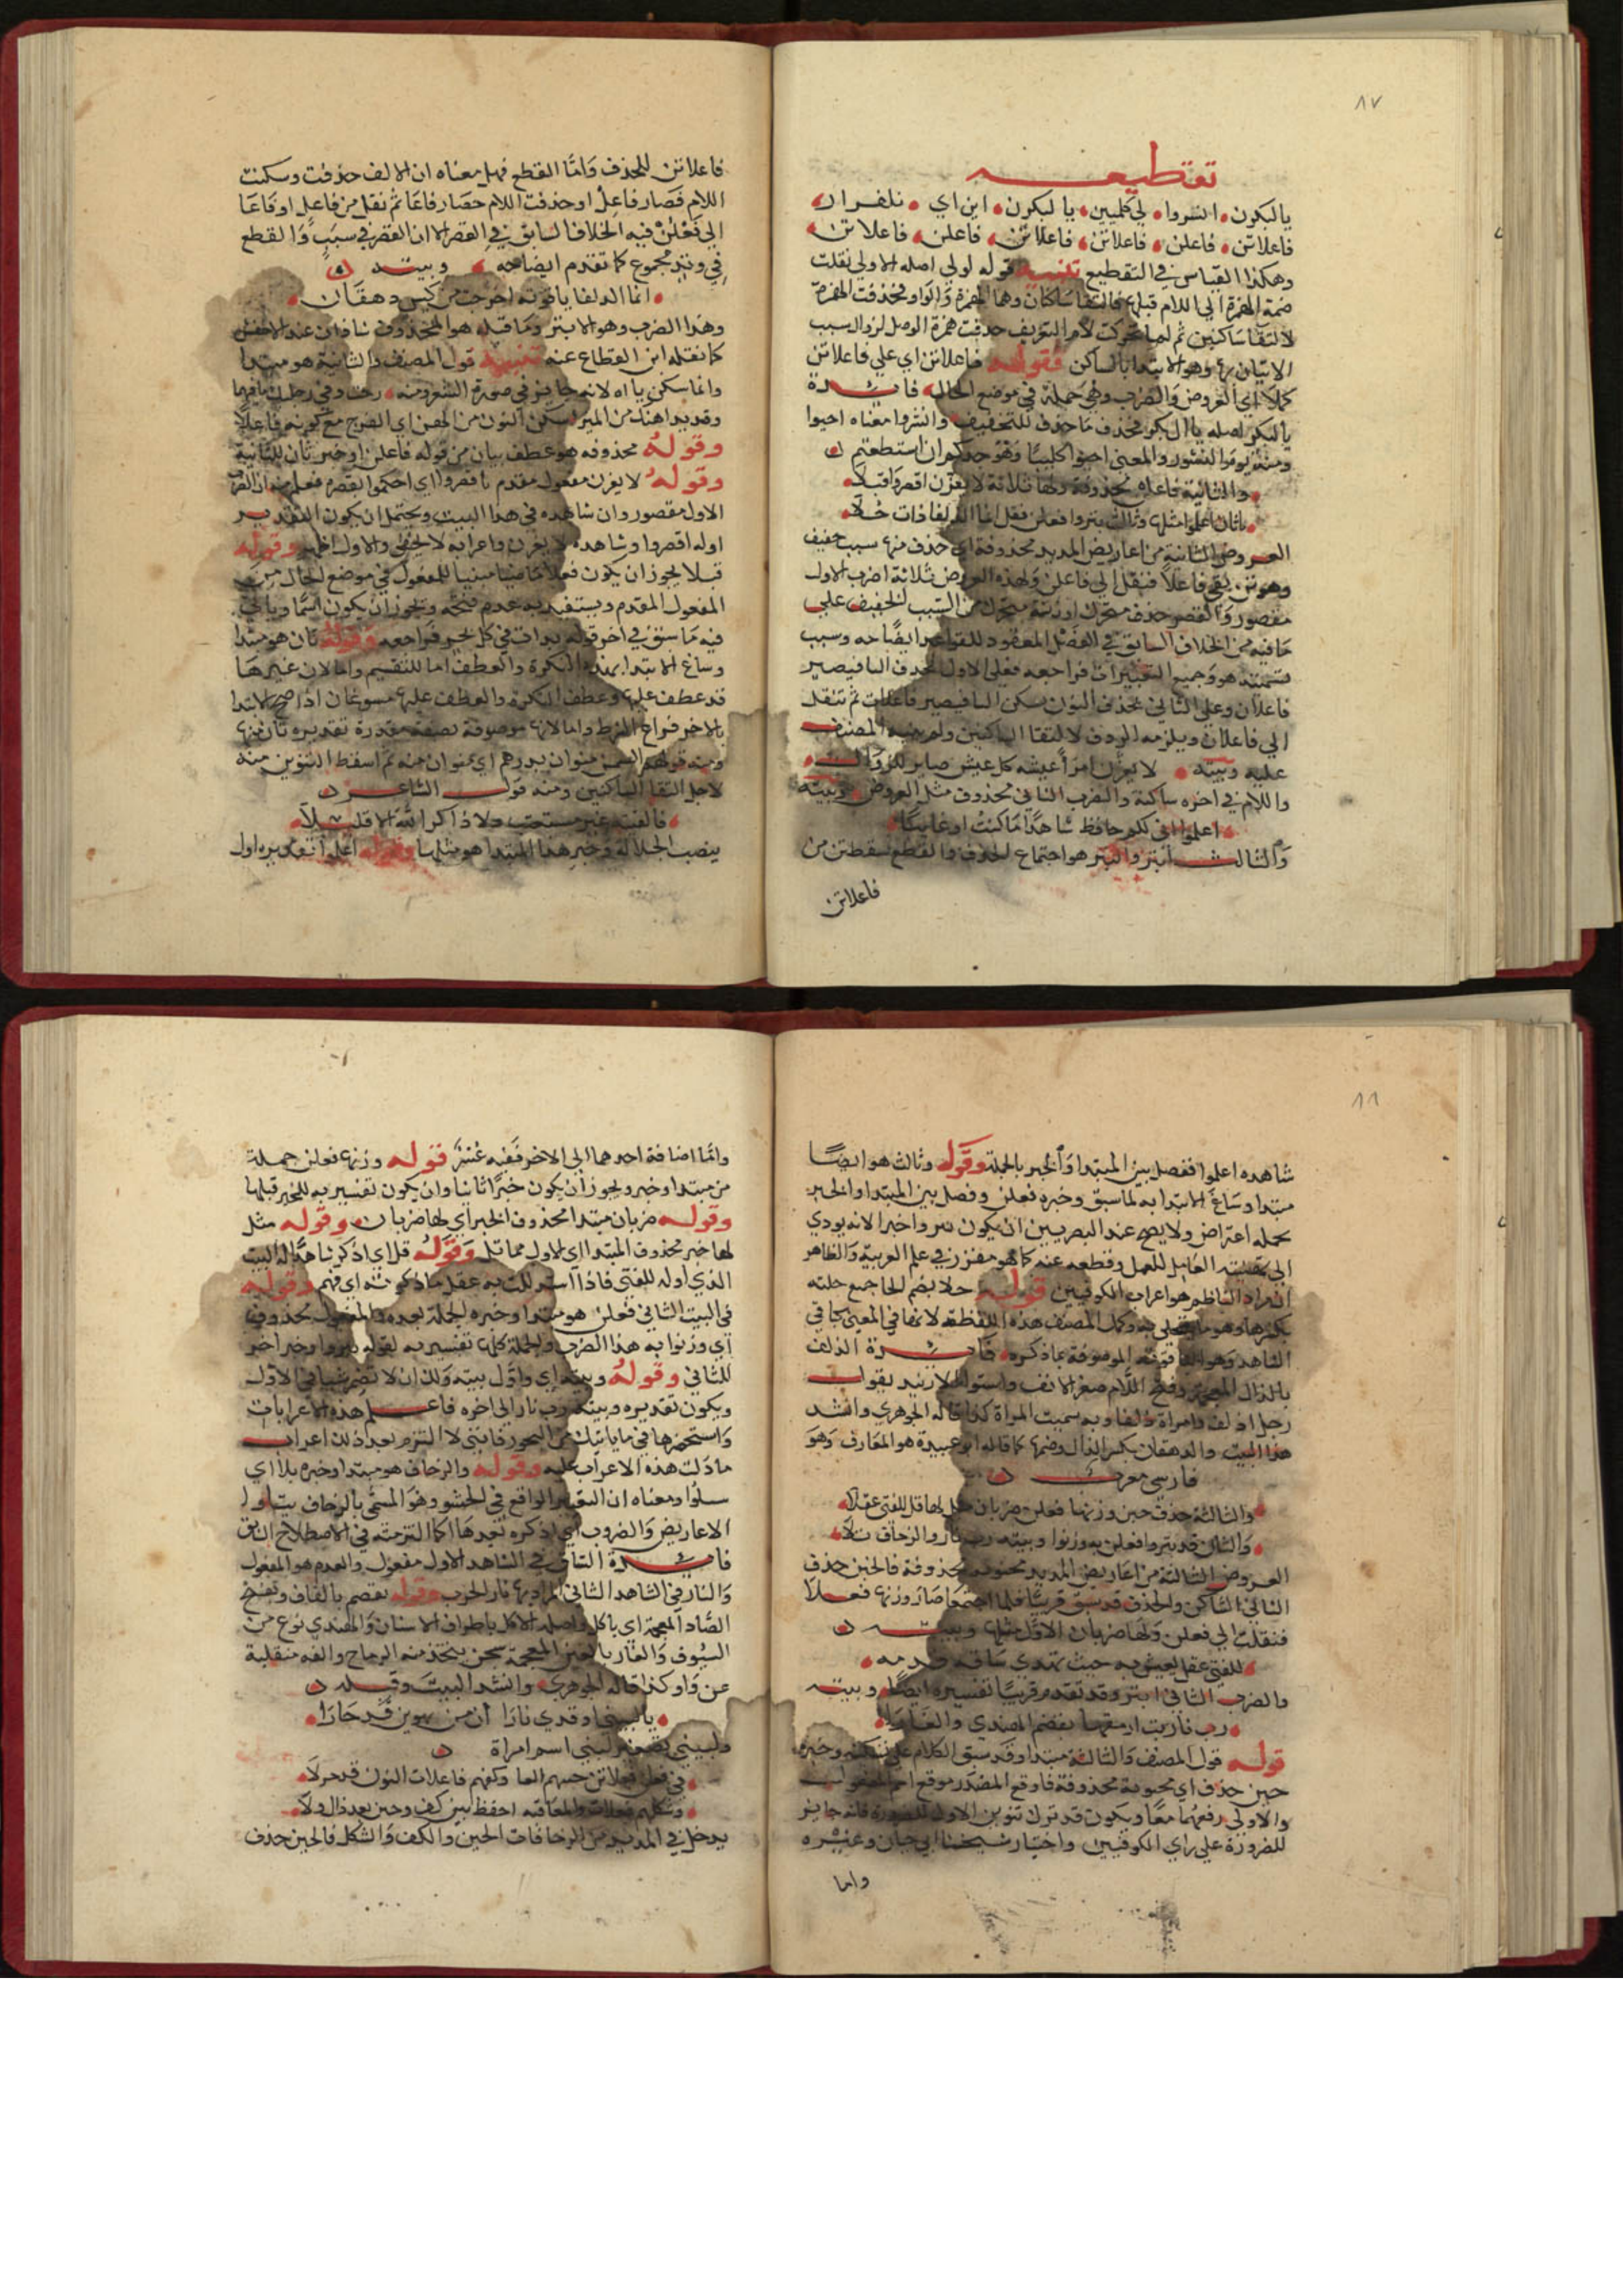 ٨٧
تقطيعه
يالبكرن انشروا لي كليبن يا لبكرن اين اي نلفرار
فاعلاتن فاعلن فاعلاتن فاعلاتن فاعلن فاعلاتن
وهكذا القياس في التقطيع تنبيه قوله اولي اصله الاولي نقلت
ضمة الهمزة الي اللام قبلها فالتقا ساكنان وهما الهمزة والواو فحذفت الهمزة
لالتقا ساكنين ثم لما تحركت لام التعريف حذفت همزة الوصل لزوال سبب
الاتيان بها وهو الابتدا بالساكن فقوله فاعلاتن اي علي فاعلاتن
كملا اي العروض والضرب وهي جملة في موضع الحال فايدة
يالبكر اصله يا ال بكر فحذف ما حذف للتخفيف وانشروا معناه احيوا
ومنه يوم النشور والمعني احيوا كليبا وهو حدكم ان استطعتم
والثانية فاعلن محذوفة ولها ثلاثة لا يغرن اقصروا قبلا
ثان اعلموا مثلها وثالث بتروا فعلن فقل انما الذلفا ذات خلا
العروض الثانية من اعاريض المديد محذوفة اي حذف منها سبب خفيف
وهو تن بقي فاعلا فنقل الي فاعلن ولهذه العروض ثلاثة اضرب الاول
مقصور والقصر حذف متحرك او زنة متحرك من السبب الخفيف علي
ما فيه من الخلاف السابق في الفصل المعقود للقواعد ايضاحه وسبب
تسميته هو وجميع التغييرات فراجعه فعلي الاول تحذف التا فيصير
فاعلان وعلي الثاني تحذف النون وتسكن التا فيصير فاعلات ثم تنقل
الي فاعلان ويلزمه الردف لالتقا الساكنين ولم ينبه المصنف
عليه وبيته لا يغرن امرأ عيشه كل عيش صاير للزوال
واللام في اخره ساكنة والضرب الثاني محذوف مثل العروض وبيته
اعلموا اني لكم حافظ شاهدا ما كنت او غايبا
والثالث ابتر والبتر هو اجتماع الحذف والقطع فسقط تن من
فاعلاتن
فاعلاتن للحذف واما القطع فهل معناه ان الالف حذفت وسكنت
اللام فصار فاعل او حذفت اللام فصار فاعا ثم نقل من فاعل او فاعا
الي فعلن فيه الخلاف السابق في القصر الا ان القصر في سبب والقطع
في وتد مجموع كما تقدم ايضاحه وبيته
انما الذلفا ياقوتة اخرجت من كيس دهقان
وهذا الضرب وهو الابتر وما قبله هو المحذوف شاذان عند الاخفش
كما نقله ابن القطاع عنه تنبيه قول المصنف والثانية هو مبتدا
وقوله محذوفه هو عطف بيان من قوله فاعلن او خبر ثان للثانية
وقوله لا يغرن مفعول مقدم باقصروا اي احكموا بقصره فعلم منه ان الضرب
الاول مقصور وان شاهده في هذا البيت ويحتمل ان يكون التقدير
اوله اقصروا وشاهده لا يغرن واعرابه لا يخفي والاول اظهر وقوله
قبلا يجوز ان يكون فعلا ماضيا مبنيا للمفعول في موضع الحال من
المفعول المقدم ويستفيد به عدم قبحه ويجوز ان يكون اسما وياتي
فيه ما سبق في اخر قوله يدات في كل بحر فراجعه وقوله ثان هو مبتدا
وساغ الابتدا بهذه النكرة والعطف اما للتقسيم واما لان غيرها
قد عطف عليها وعطف النكرة والعطف عليها مسوغان اذا صح الابتدا
بالاخر فراع الشرط واما لانها موصوفة بصفة مقدرة تقديره ثان منها
ومنه قولهم السمن منوان بدرهم اي منوان منه ثم اسقط التنوين منه
لاجل التقا الساكنين ومنه قول الشاعر
فالفيته غير مستعتب ولا ذاكر الله الا قليلا
بنصب الجلالة وخبر هذا المبتدا هو مثلها وقوله اعلموا تقديره اول
٨٨
شاهده اعلموا ففصل بين المبتدا والخبر بالجملة وقوله وثالث هو ايضا
مبتدا وساغ الابتدا به لما سبق وخبره فعلن وفصل بين المبتدا والخبر
بجملة اعتراض ولا يصح عند البصريين ان يكون بتروا خبرا لانه يودي
الي تهيئة العامل للعمل وقطعه عنه كما هو مقرر في علم العربية والظاهر
ان مراد الناظم هو اعراب الكوفيين قوله حلا بضم الحا جمع حلية
بكسرها وهو ما يتحلي به وكمل المصنف هذه اللفظة لانها في المعني كباقي
الشاهد وهو الياقوتة الموصوفة بما ذكره فايدة الذلف
بالذال المعجمة وفتح اللام صغر الانف واستوا الارنبة يقول
رجل اذلف وامراة ذلفا وبه سميت المراة كذا قاله الجوهري وانشد
هذا البيت والدهقان بكسر الدال وضمها كما قاله ابو عبيدة هو المعارف وهو
فارسي معرب
والثالثة حذف خبن وزنها فعلن ضربان مثل لها قل للفتي عقلا
والثان قد بتروا فعلن به وزنوا وبيته رب نار والزحاف تلا
العروض الثالثة من اعاريض المديد مخبونة محذوفة فالخبن حذف
الثاني الساكن والحذف قد سبق قريبا فلما اجتمعا صار وزنها فعلا
فنقلت الي فعلن ولها ضربان الاول مثلها وبيته
للفتي عقل يعيش به حيث تهدي ساقه قدمه
والضرب الثاني ابتر وقد تقدم قريبا تفسيره ايضا وبيته
رب نار بت ارمقها تقضم الهندي والغارا
قوله قول المصنف والثالثة مبتدا وقد سبق الكلام علي تنكيره وخبره
خبن حذف اي مخبونة محذوفة فاوقع المصدر موقع اسم المفعول
والاولي رفعهما معا ويكون قد ترك تنوين الاول للضرورة فانه جايز
للضرورة علي راي الكوفيين واختيار شيخنا ابي حيان وغيره
واما
واما اضافة احدهما الي الاخر ففيه عسر قوله وزنها فعلن جملة
من مبتدا وخبر ويجوز ان يكون خبرا ثانيا وان يكون تفسير به للخبر قبلها
وقوله ضربان مبتدا محذوف الخبر اي لها ضربان وقوله مثل
لها خبر محذوف المبتدا اي الاول مماثل وقوله قل اي اذكر شاهدا له البيت
الذي اوله للفتي فاذا استدللت به عقل ما ذكرته اي فهم وقوله
في البيت الثاني فعلن هو مبتدا وخبره الجملة بعده والمفعول محذوف
اي وزنوا به هذا الضرب والجملة كلها تفسير به لقوله بتروا وخبر اخر
للثاني وقوله وبيته اي واول بيته ولك ان لا تضمر شيا في الاول
ويكون تقديره وبيته رب نار الي اخره فاعلم هذه الاعرابات
واستحضرها في ما ياتيك من البحور فانني لا التزم بعد ذلك اعراب
ما دلت هذه الاعراب عليه وقوله والزحاف هو مبتدا وخبره تلا اي
ومعناه ان التغيير الواقع في الحشو وهو المسمي بالزحاف يتلو
الاعاريض والضروب اي اذكره بعدها كما التزمته في الاصطلاح السابق
فايدة الساق في الشاهد الاول مفعول والقدم هو المفعول
والنار في الشاهد الثاني المراد بها نار الحرب وقوله تقضم بالقاف وبفتح
الضاد المعجمة اي ياكل واصله الاكل باطراف الاسنان والهندي نوع من
السيوف والغار بالغين المعجمة شجر يتخذ منه الرماح والفه منقلبة
عن واو كذا قاله الجوهري وانشد البيت وقبله
يا لبيني اوقدي نارا ان من تهوين قد حارا
ولبيني تصغير لبني اسم امراة
وشكلهم فعلات والمعاقبة احفظ بين كف وخبن بعد ذال ولا
يدخل في المديد من الزحافات الخبن والكف والشكل فالخبن حذف